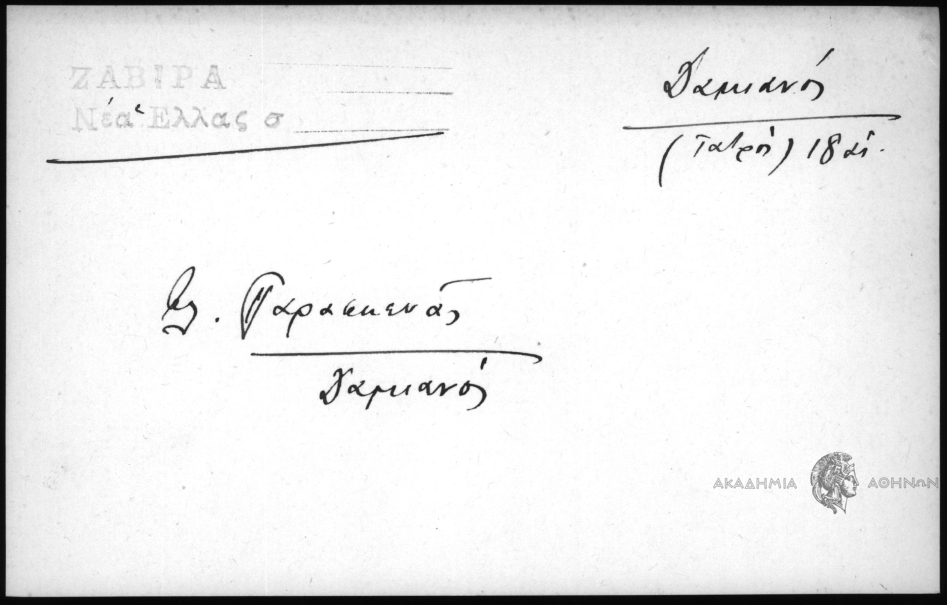 ΖΑΒΙΡΑ
Νέα Ἑλλας σ
Δαμιανός
(ἰατρός) 18 αἰ.
βλ. Παρασκευᾶς
Δαμιανός
ΑΚΑΔΗΜΙΑ ΑΘΗΝΩΝ